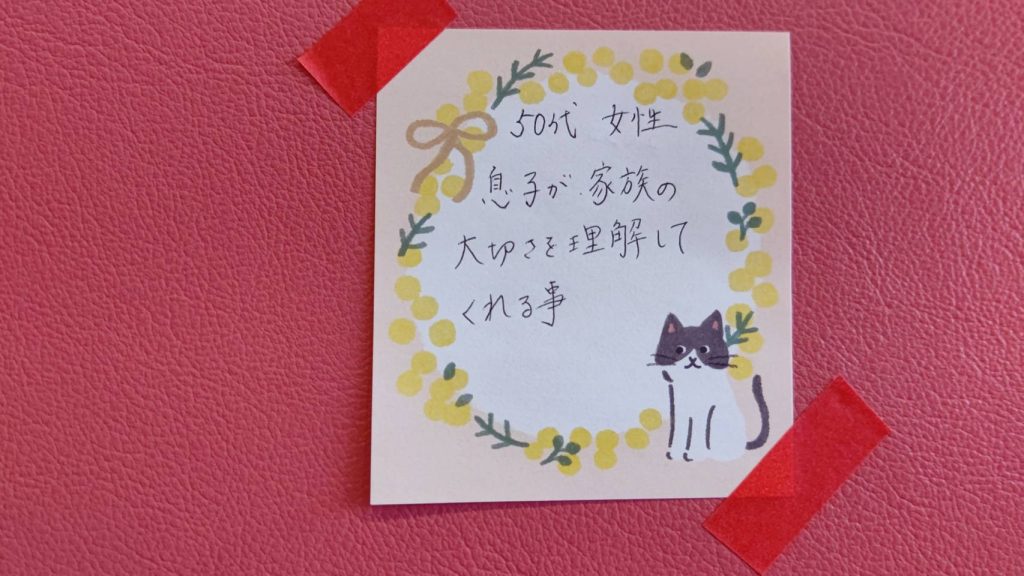 50代 女性
息子が、家族の
大切さを理解して
くれる事